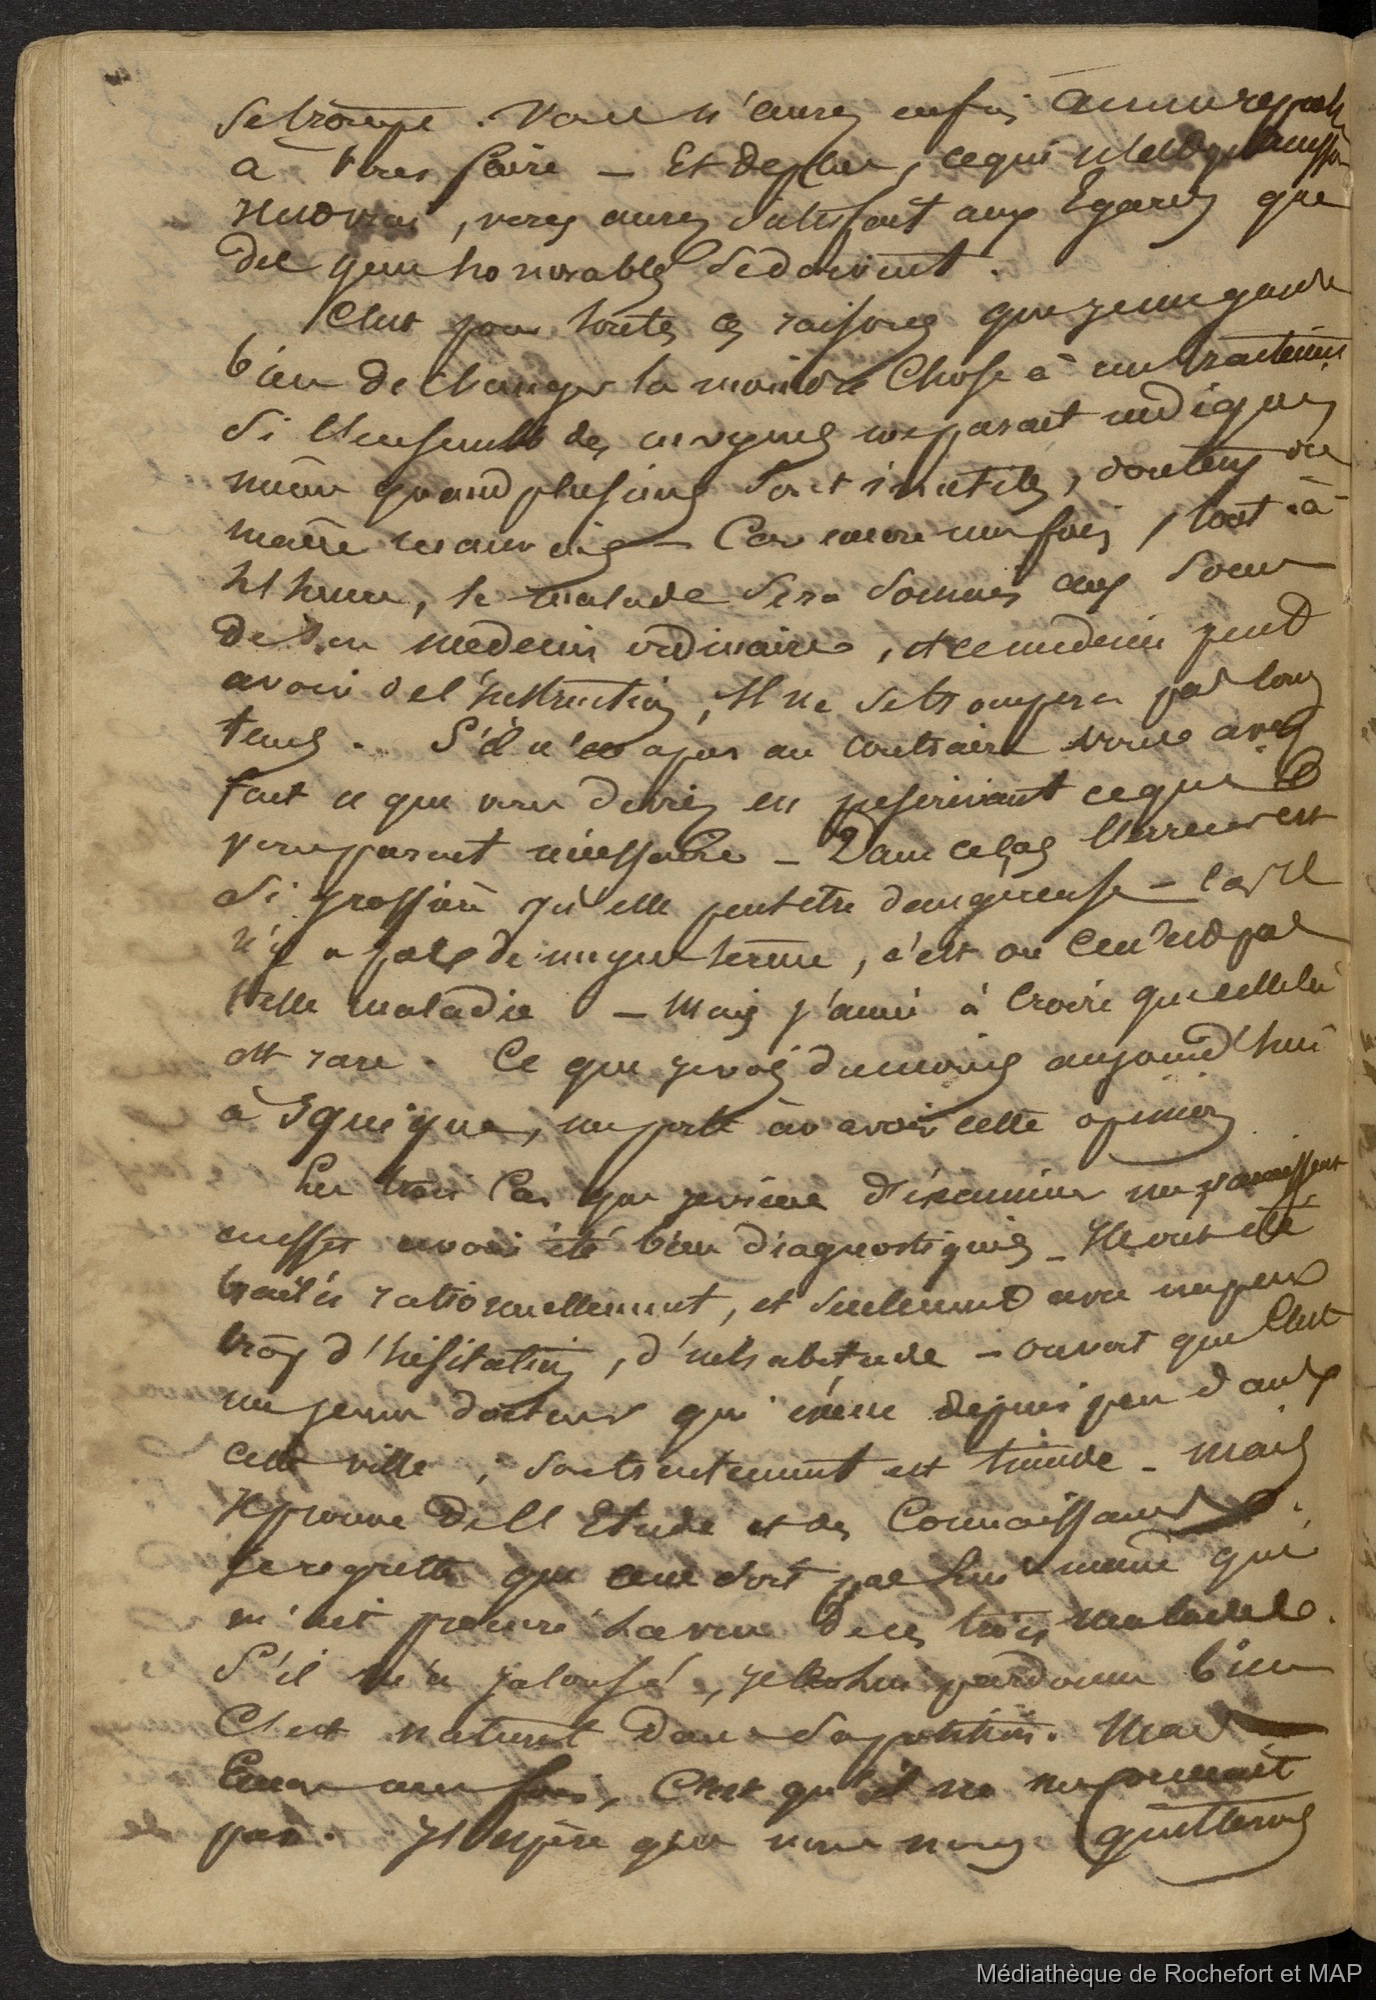 se trompe. Vous n'aurez enfin aucun reproche
à vous faire — Et de plus, ce qui n'est qu'aussi
vous aurez satisfait aux Egards que
des gens honorables se doivent.
C'est pour toutes ces raisons que je me garde
bien de changer la moindre chose à un traitement
si l'ensemble des moyens me parait indiqué,
même quand plusieurs sont inutiles, douteux ou
même mauvais — Car encore une fois, tout à
l'heure, le malade sera soumis aux soins
de son médecin ordinaire, et ce médecin peut
avoir de l'instruction, Il ne se trompera pas long
tems. S'il n'en a pas au contraire vous avez
fait ce que vous deviez en prescrivant ce qui
vous parait nécessaire — Dans ce cas l'erreur est
si grossière qu'elle peut être dangereuse — Car il
n'y a pas de moyen terme, c'est ou ce n'est pas
telle maladie — Mais j'aime à croire que celle là
est rare. Ce que je vois du moins aujourd'hui
à Iquique, me porte à avoir cette opinion
Les trois Cas que je viens d'examiner me paraissent
aussi avoir été bien diagnostiqués — Ils ont été
traités rationnellement, et seulement avec un peu
trop d'hésitation, d'inhabitude — on voit que c'est
un jeune docteur qui exerce depuis peu dans
cette ville, son traitement est timide — mais
Il prouve de l'Etude et des Connaissances.
Je regrette que ce ne soit pas lui même qui
m'ait procuré la vue de ces trois malades.
S'il m'a jalousé, je le lui pardonne bien
C'est naturel dans sa position. Mais
Encore une fois, C'est qu'il ne me connait
pas. J'Espère que nous nous quitterons